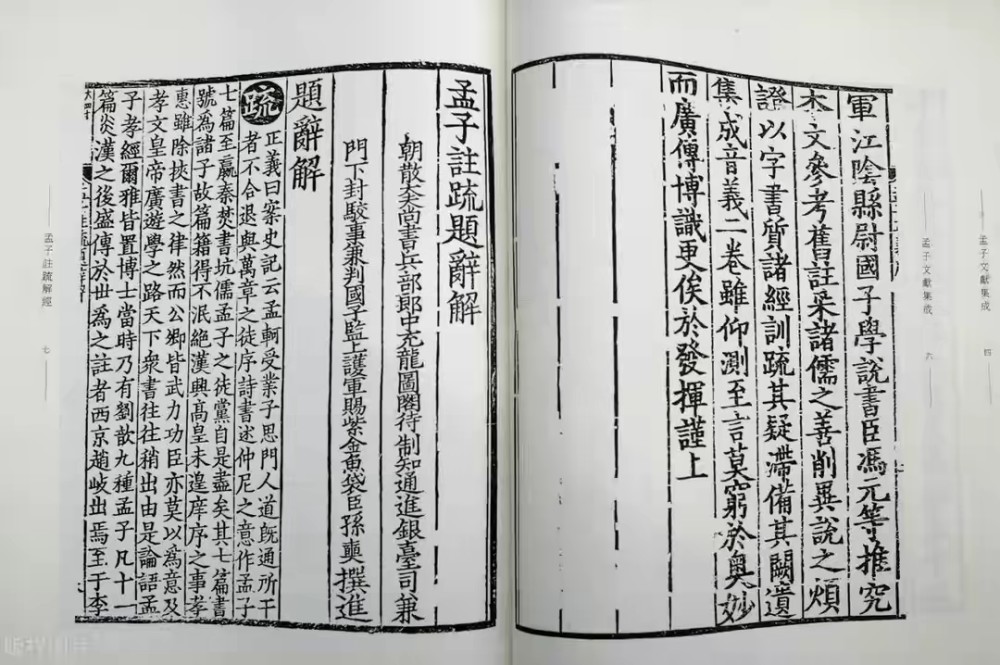 軍江陰縣尉國子學說書臣馮元等推究
本文參考舊註采諸儒之善削異說之煩
證以字書質諸經訓疏其疑滯備其闕遺
集成音義二卷雖仰測至言莫窮於奧妙
而廣傳博識更俟於發揮謹上
孟子文獻集成
四
孟子文獻集成
六
孟子註疏題辭解
朝散大夫尚書兵部郎中充龍圖閣待制知通進銀臺司兼
門下封駮事兼判國子監上護軍賜紫金魚袋臣孫奭撰進
題辭解
疏
正義曰案史記云孟軻受業子思門人道旣通所干
者不合退與萬章之徒序詩書述仲尼之意作孟子
七篇至嬴秦焚書坑儒孟子之徒黨自是盡矣其七篇書
號爲諸子故篇籍得不泯絕漢興高皇未遑庠序之事孝
惠雖除挾書之律然而公卿皆武力功臣亦莫以爲意及
孝文皇帝廣遊學之路天下衆書往往稍出由是論語孟
子孝經爾雅皆置博士當時乃有劉歆九種孟子凡十一
篇炎漢之後盛傳於世爲之註者西京趙岐出焉至于李
孟子註疏解經
七